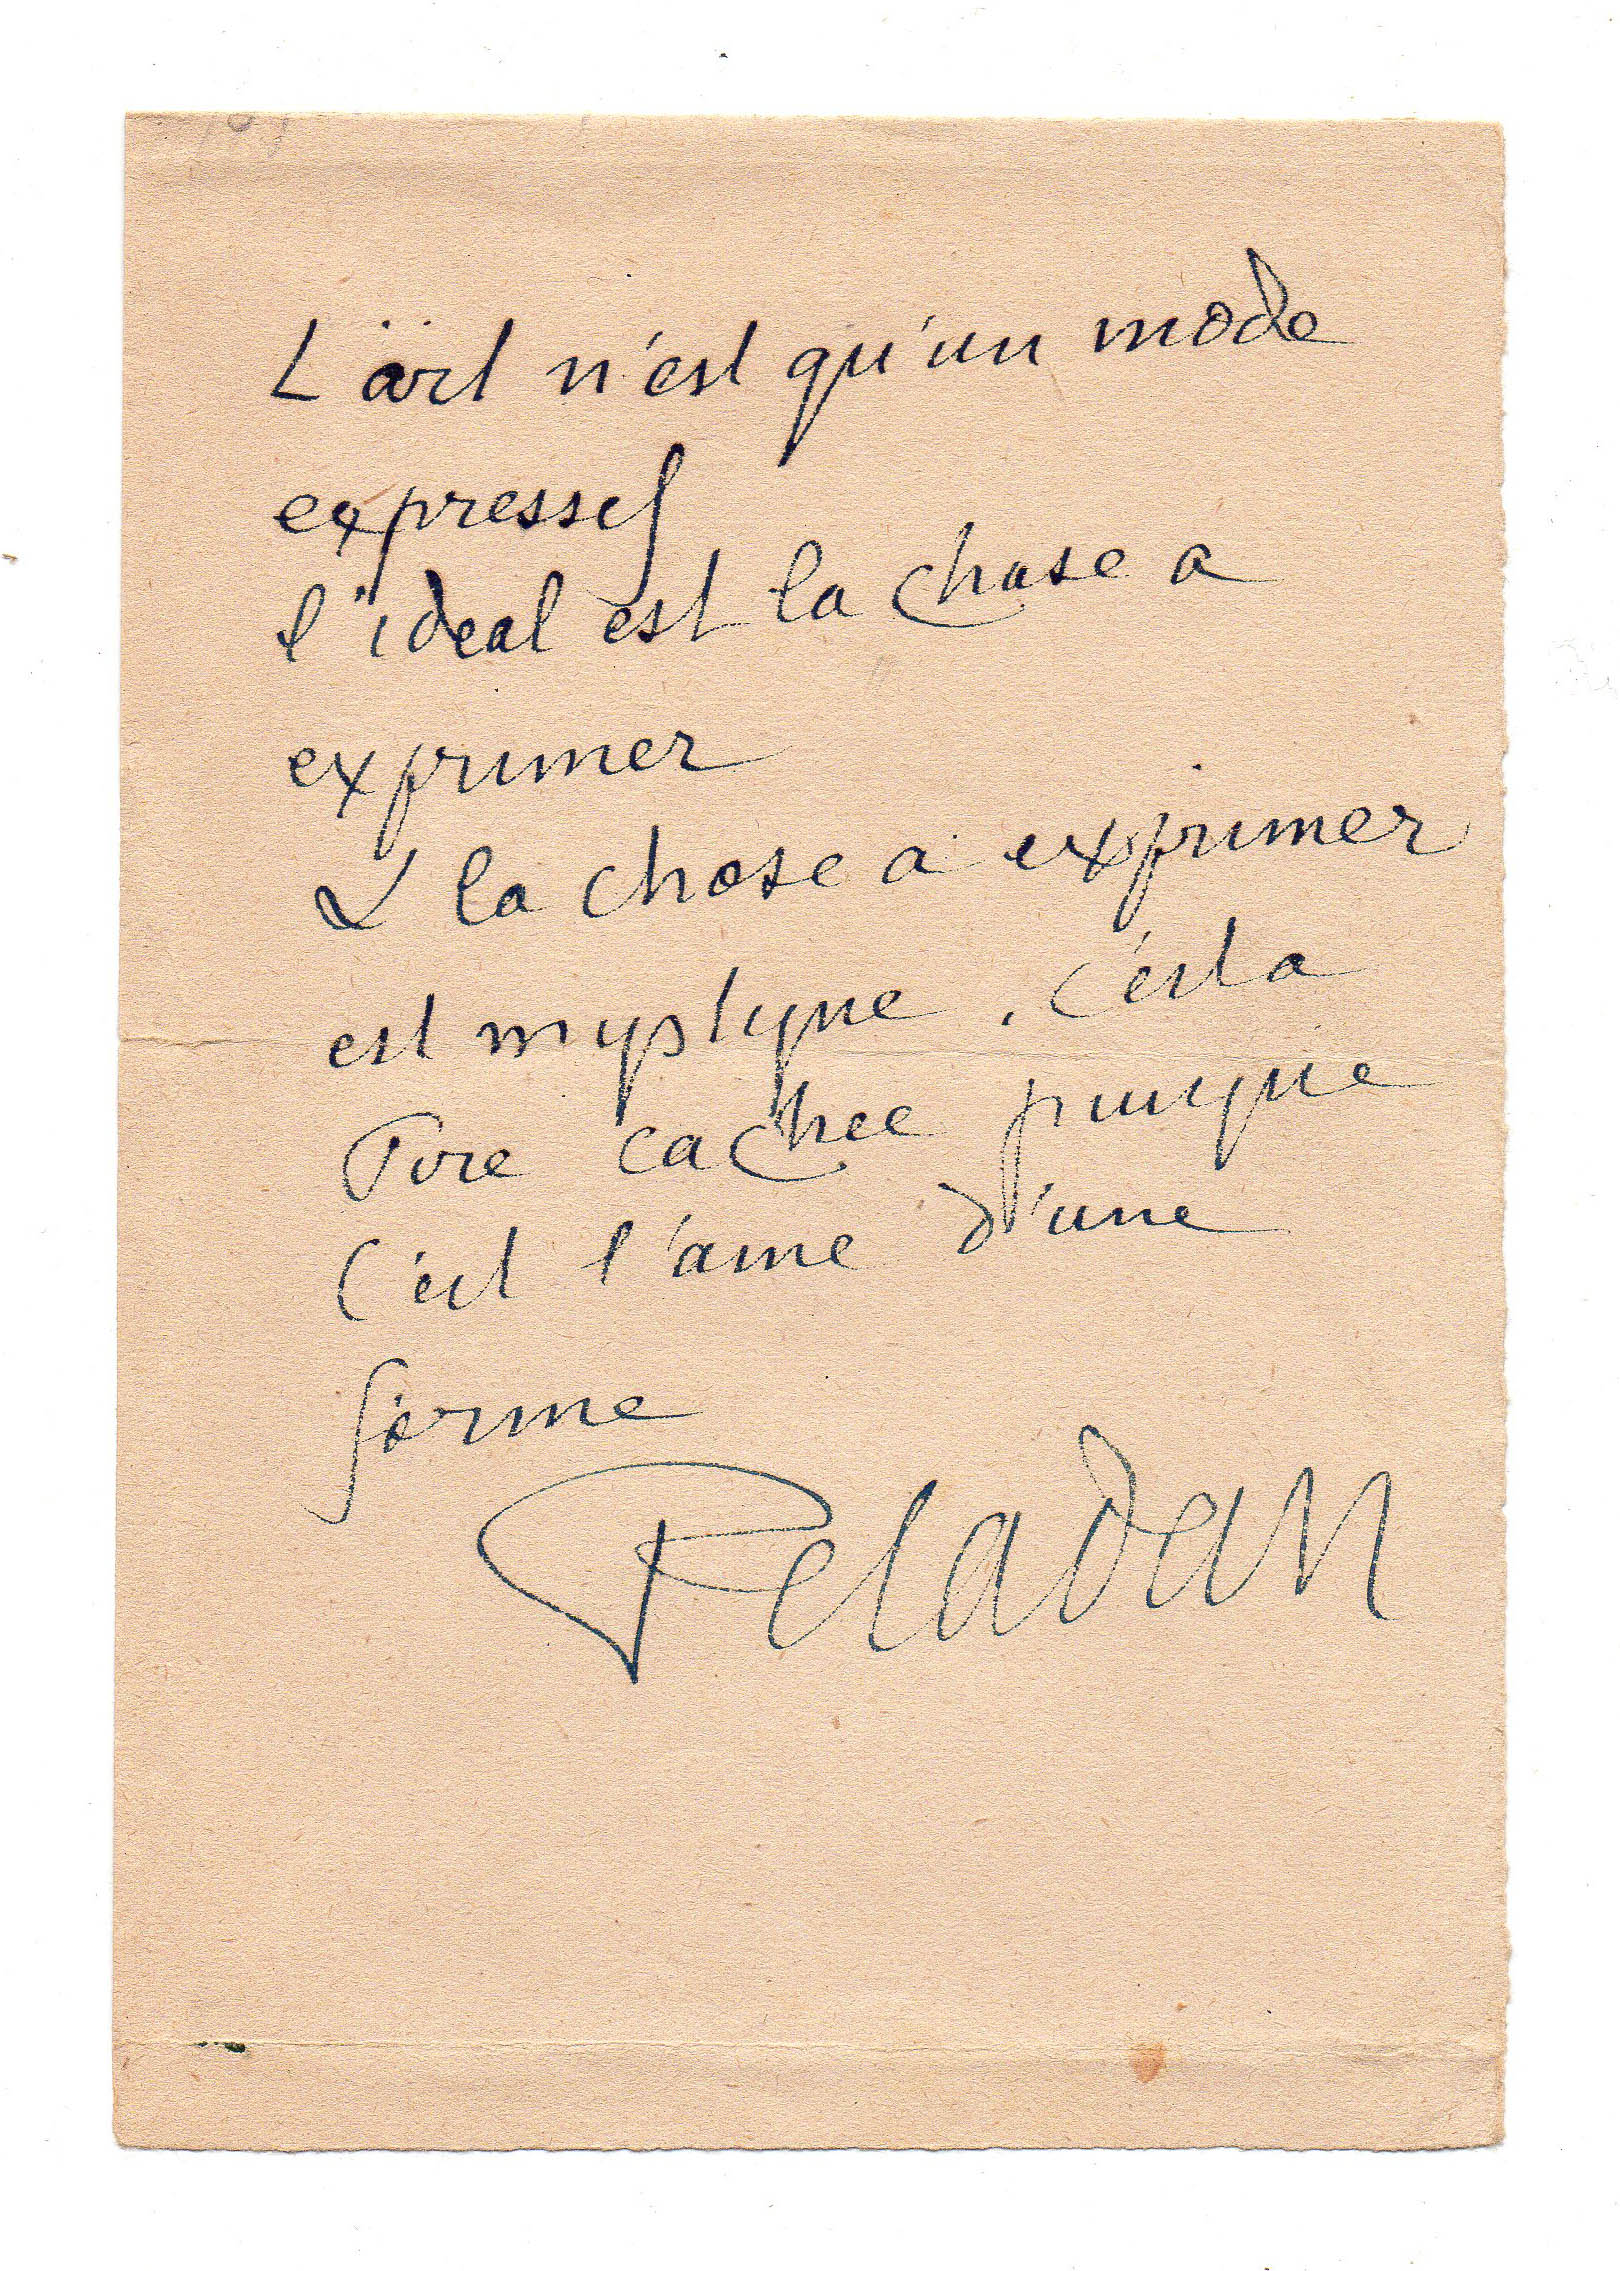 L'art n'est qu'un mode
expressif
l'ideal est la chose a
exprimer
& la chose a exprimer
est mystique, c'est a
Dire cachee puisque
C'est l'ame d'une
forme
Peladan